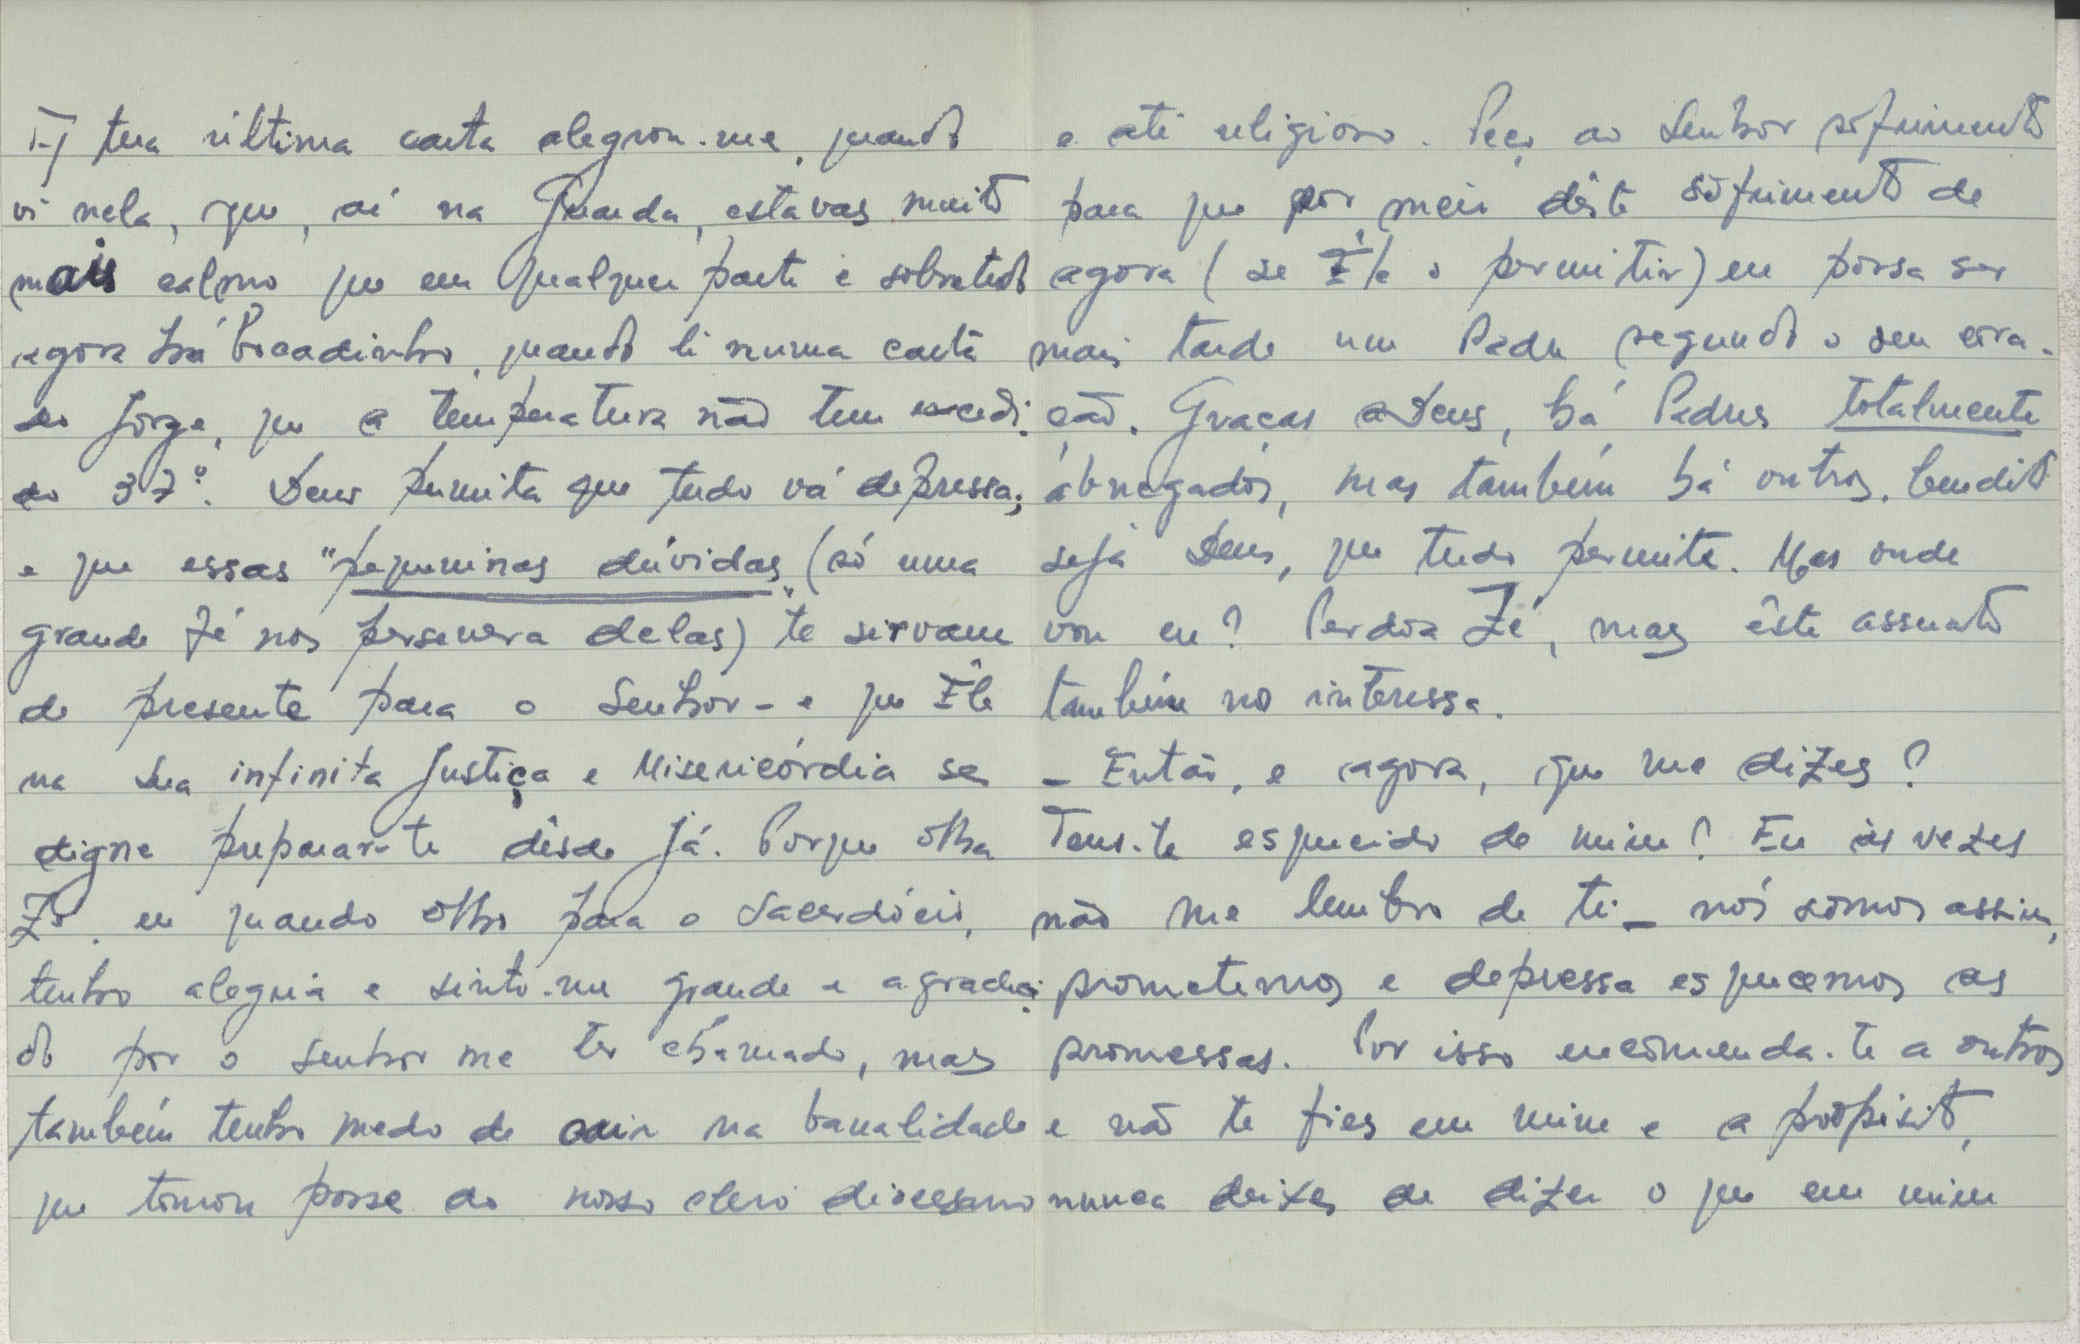 A tua última carta alegrou-me, quando
vi nela, que, aí na Guarda, estavas muito
mais calmo que em qualquer parte e sobretudo
agora há bocadinho, quando li numa carta
do Jorge, que a temperatura não tem excedi-
do 37º. Deus permita que tudo vá depressa;
e que essas "pequeninas dúvidas" (só uma
grande Fé nos persevera delas) te sirvam
de presente para o Senhor - e que Êle
na Sua infinita Justiça e Misericórdia se
digne preparar-te désde já. Porque olha
Zé, eu quando olho para o Sacerdócio,
tenho alegria e sinto-me grande e agradeci-
do por o Senhor me ter chamado, mas
também tenho medo de cair na banalidade
que tomou posse do nosso clero diocesano
e até religioso. Peço ao Senhor sofrimento
para que por meio dêste sofrimento de
agora (se Êle o permitir) eu possa ser
mais tarde um Padre segundo o seu cora-
ção. Graças a Deus, há Padres totalmente
abnegados, mas também há outros, bendito
seja Deus, que tudo permite. Mas onde
vou eu? Perdoa Zé, mas êste assunto
também nos interessa.
- Então, e agora, que me dizes?
Tens-te esquecido de mim? Eu às vezes
não me lembro de ti - nós somos assim,
prometemos e depressa esquecemos as
promessas. Por isso encomenda-te a outros
e não te fies em mim e a propósito,
nunca deixes de dizer o que em mim